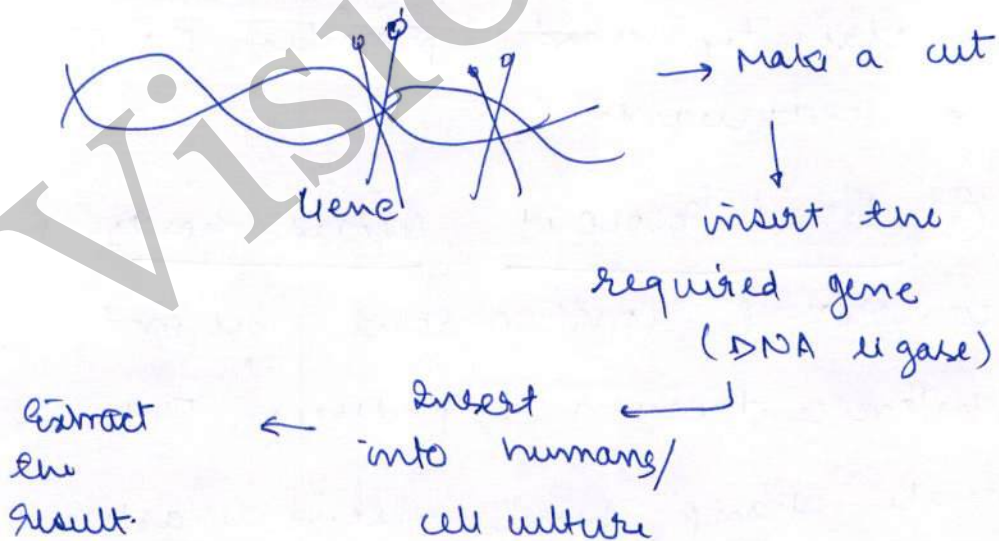 Visio
→ Make a cut
Gene
insert the
required gene
(DNA ligase)
Insert
into humans/
cell culture
Extract
the
result.